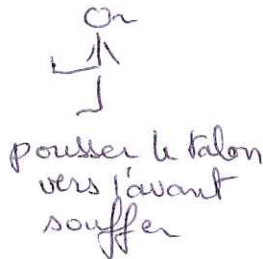 pousser le talon
vers l'avant
souffer